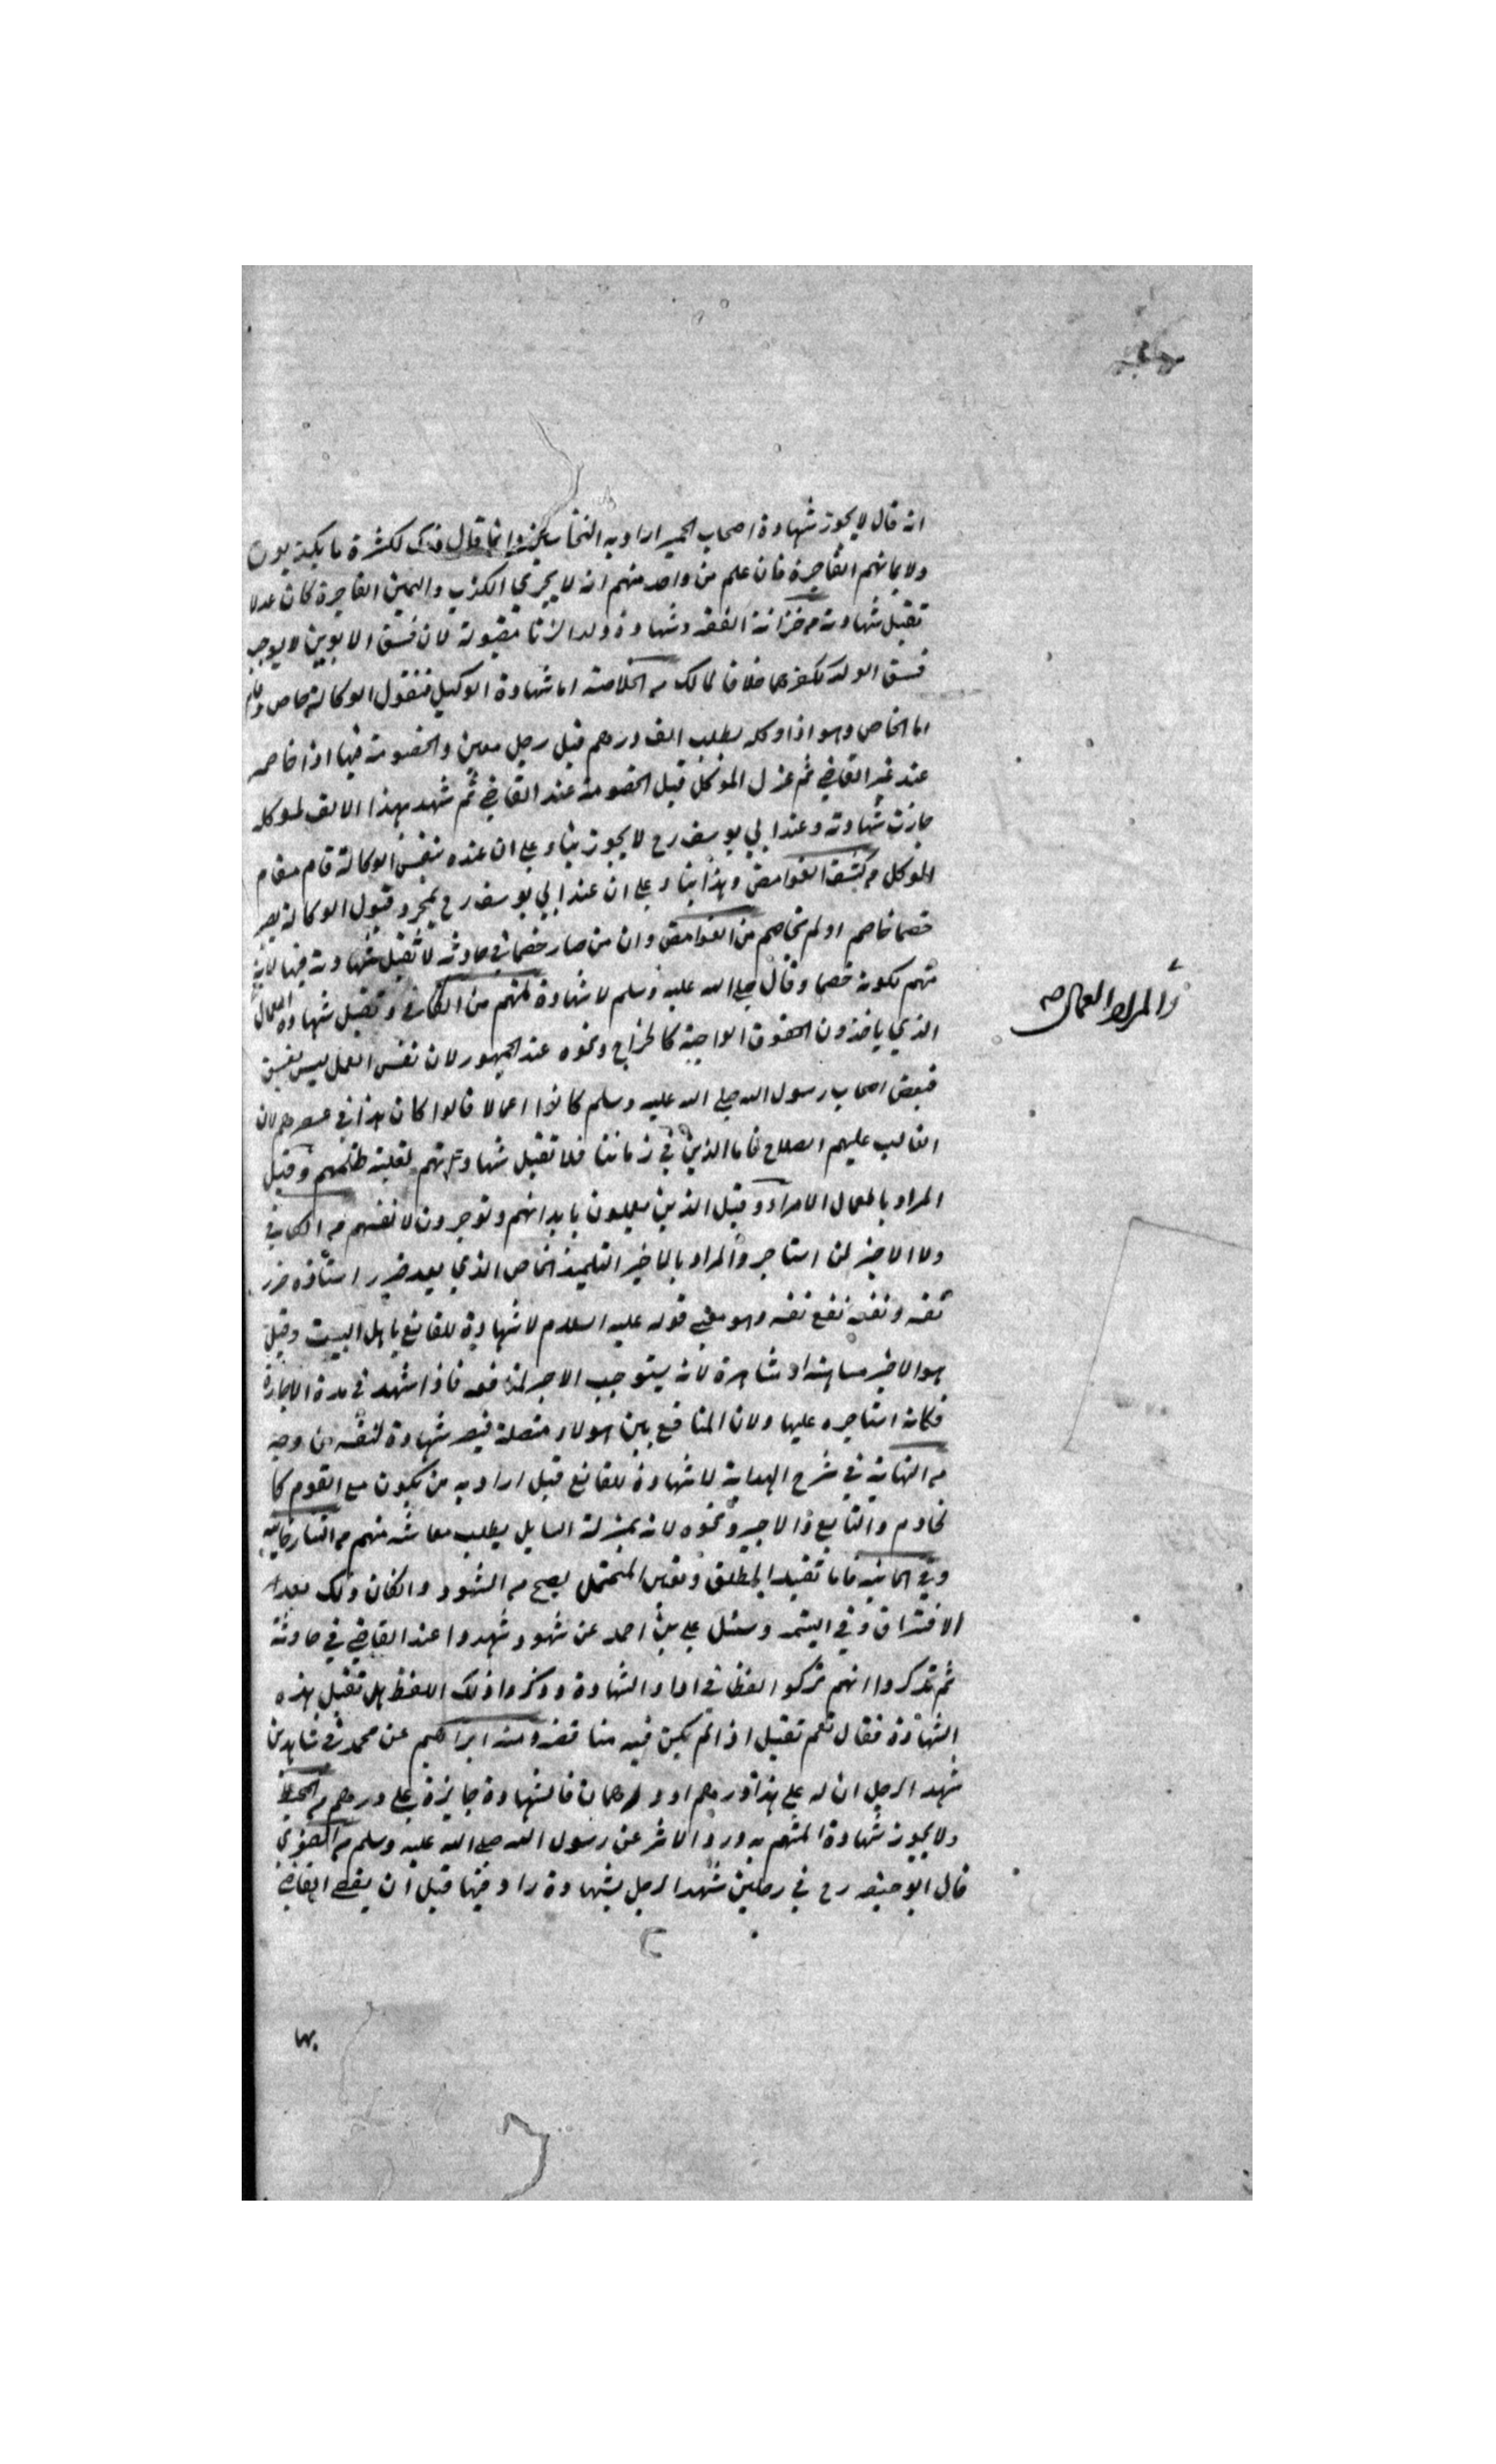 انه قال لا يجوز شهادة اصحاب الحمير اراد به النخاسين وانما قال ذلك لكثرة ما يكذبون
ولايمانهم الفاجرة فان علم من واحد منهم انه لا يجري الكذب واليمين الفاجرة كان عدلا
تقبل شهادته من خزانة الفقه وشهادة ولد الزنا مقبولة لان فسق الابوين لا يوجب
فسق الولد ككفرهما خلافا لمالك من الخلاصة اما شهادة الوكيل فنقول الوكالة خاص وعام
اما الخاص وهو اذا وكله بطلب الف درهم قبل رجل معين والخصومة فيها اذا خاصمه
عند غير القاضي ثم عزل الموكل قبل الخصومة عند القاضي ثم شهد بهذا الالف لموكله
جازت شهادته وعند ابي يوسف رح لا يجوز بناء على ان عنده بنفس الوكالة قام مقام
الموكل من كشف الغوامض وهذا بناء على ان عند ابي يوسف رح بمجرد قبول الوكالة يصير
خصما خاصم او لم يخاصم من الغوامض وان من صار خصما في حادثة لا تقبل شهادته فيها لانه
متهم بكونه خصما وقال صلى الله عليه وسلم لا شهادة لمتهم من الكافي وتقبل شهادة العمال
الذي ياخذون الحقوق الواجبة كالخراج ونحوه عند الجمهور لان نفس العمل ليس بفسق
فبعض اصحاب رسول الله صلى الله عليه وسلم كانوا اعمالا قالوا كان هذا في عصرهم لان
الغالب عليهم الصلاح فاما الذين في زماننا فلا تقبل شهادتهم لغلبة ظلمهم وقيل
المراد بالعمال الامراء وقيل الذين يعملون بابدانهم وتوجرون لانفسهم من الكافي
ولا الاجير لمن استاجر والمراد بالاخير التلميذ الخاص الذي يعد ضرر استاذه ضرر
نفسه ونفعه نفع نفسه وهو معنى قوله عليه السلام لا شهادة للقانع باهل البيت وقيل
هو الاجير مسانهة او مشاهرة لانه يستوجب الاجر لمنافعه فاذا شهد في مدة الاجارة
فكانه استاجره عليها ولان المنافع بين هولاء متصلة فيصير شهادة لنفسه من وجه
من النهاية في شرح الهداية لا شهادة للقانع قيل اراد به من يكون مع القوم كا
لخادم والتابع والاجير ونحوه لانه بمنزلة السايل يطلب معاشه منهم من التتارخانيه
وفي الخانيه فاما تقييد المطلق وتعيين المحتمل يصح من الشهود وان كان ذلك بعد
الافتراق وفي اليتيمه وسئل علي بن احمد عن شهود شهدوا عند القاضي في حادثة
ثم تذكروا انهم تركوا لفظا في اداء الشهادة وذكروا ذلك اللفظ هل تقبل هذه
الشهادة فقال نعم تقبل اذا لم يكن فيه مناقضة ومنه ابراهيم عن محمد في شاهدين
شهدا لرجل ان له على هذا درهم او درهمان فالشهادة جايزة على درهم من المحيط
ولا يجوز شهادة المتهم به ورد الاثر عن رسول الله صلى الله عليه وسلم من
قال ابو حنيفه رح في رجلين شهدا لرجل بشهادة زادا فيها قبل ان يقضي القاضي
بها
والمراد العمال صح